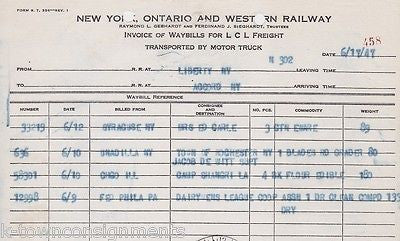 FORM R. T. 334 REV. 1
NEW YORK, ONTARIO AND WESTERN RAILWAY
RAYMOND L. GEBHARDT AND FERDINAND J. SIEGHARDT, TRUSTEES
INVOICE OF WAYBILLS FOR L C L FREIGHT 458
TRANSPORTED BY MOTOR TRUCK
DATE 6/17/47
N 302
FROM R.R. AT LIBERTY NY LEAVING TIME
TO R.R. AT ACCORD NY ARRIVING TIME
WAYBILL REFERENCE
NUMBER DATE BILLED FROM CONSIGNEE AND DESTINATION NO. PCS. COMMODITY WEIGHT
6/12 SYRACUSE NY MRS ED 3 CTN 89
696 6/10 UNADILLA NY TOWN OF ROCHESTER NY 1 BLADES RD GRADER 80
JACOB DE WITT SUPT
58901 6/10 CHGO ILL CAMP SHANGRI LA 4 SX FLOUR EDIBLE 180
12998 6/9 PHILA PA DAIRYMENS LEAGUE COOP ASSN 1 DR CLEAN COMPD 139
DRY
ketownconsignments